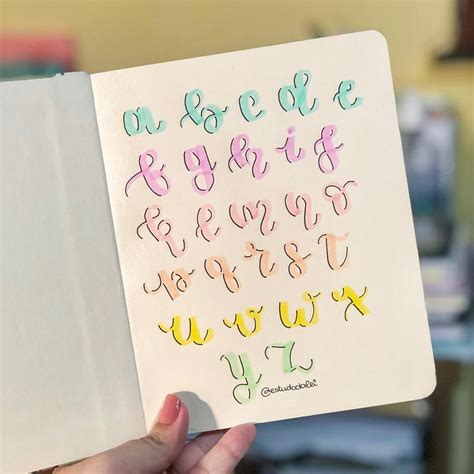 a b c d e
f g h i j
k l m n o
p q r s t
u v w x
y z
@estudodalei